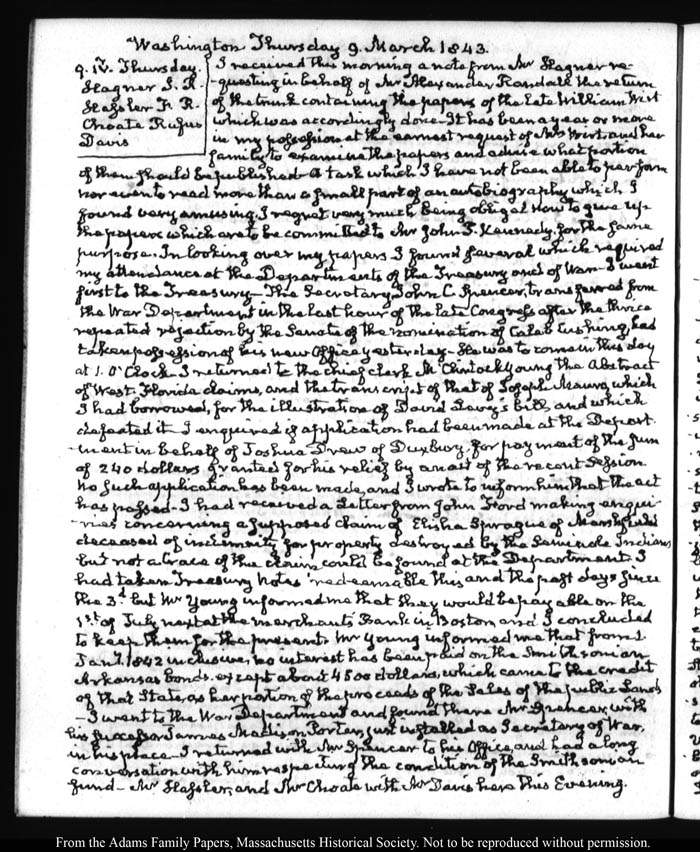 Washington Thursday 9. March 1843.
9. IV. Thursday.
Hagner I. R.
Hassler F. R.
Choate Rufus
Davis
I received this morning a note from Mr Hagner re-
-questing in behalf of Mr Alexander Randall the return
of the trunk containing the papers of the late William Wirt
which was accordingly done. It has been a year or more
in my possession at the earnest request of Mrs Wirt, and her
family to examine the papers and advise what portion
of them should be published. A task which I have not been able to perform
nor even to read more than a small part of an autobiography which I
found very amusing. I regret very much being obliged now to give up
the papers which are to be committed to Mr John P. Kennedy, for the same
purpose. In looking over my papers I found several which required
my attendance at the Departments of the Treasury and of War. I went
first to the Treasury— The Secretary John C. Spencer, transferred from
the War Department in the last hour of the late Congress after the thrice
repeated rejection by the Senate of the nomination of Caleb Cushing, had
taken possession of his new Office yesterday— He was to come in this day
at 1. O'Clock. I returned to the chief clerk McClintock Young the Abstract
of West-Florida claims, and the transcript of that of Joseph Maury which
I had borrowed, for the illustration of David Levy's bill, and which
defeated it— I enquired if application had been made at the Depart-
-ment in behalf of Joshua Drew of Duxbury, for payment of the sum
of 240 dollars granted for his relief by an act of the recent Session
no such application has been made, and I wrote to inform him that the act
has passed— I had received a Letter from John Ford making enqui-
-ries concerning a supposed claim of Elisha Sprague of Marshfield
deceased of indemnity for property destroyed by the Seminole Indians
but not a trace of the claim could be found at the Department. I
had taken Treasury Notes redeemable this and the past days since
the 3d but Mr Young informed me that they would be payable on the
1st of July next at the merchants Bank in Boston and I concluded
to keep them for the present. Mr Young informed me that from 1
Jany 1842 inclusive, no interest has been paid on the Smithsonian
Arkansas bonds. except about 4500 dollars, which came to the credit
of that State, as her portion of the proceeds of the Sales of the public Lands
— I went to the War Department and found there Mr Spencer, with
his successor James Madison Porter, just installed as Secretary of War,
in his place— I returned with Mr Spencer to his Office, and had a long
conversation with him respecting the condition of the Smithsonian
fund— Mr Hassler, and Mr Choate with Mr Davis here this Evening.
From the Adams Family Papers, Massachusetts Historical Society. Not to be reproduced without permission.